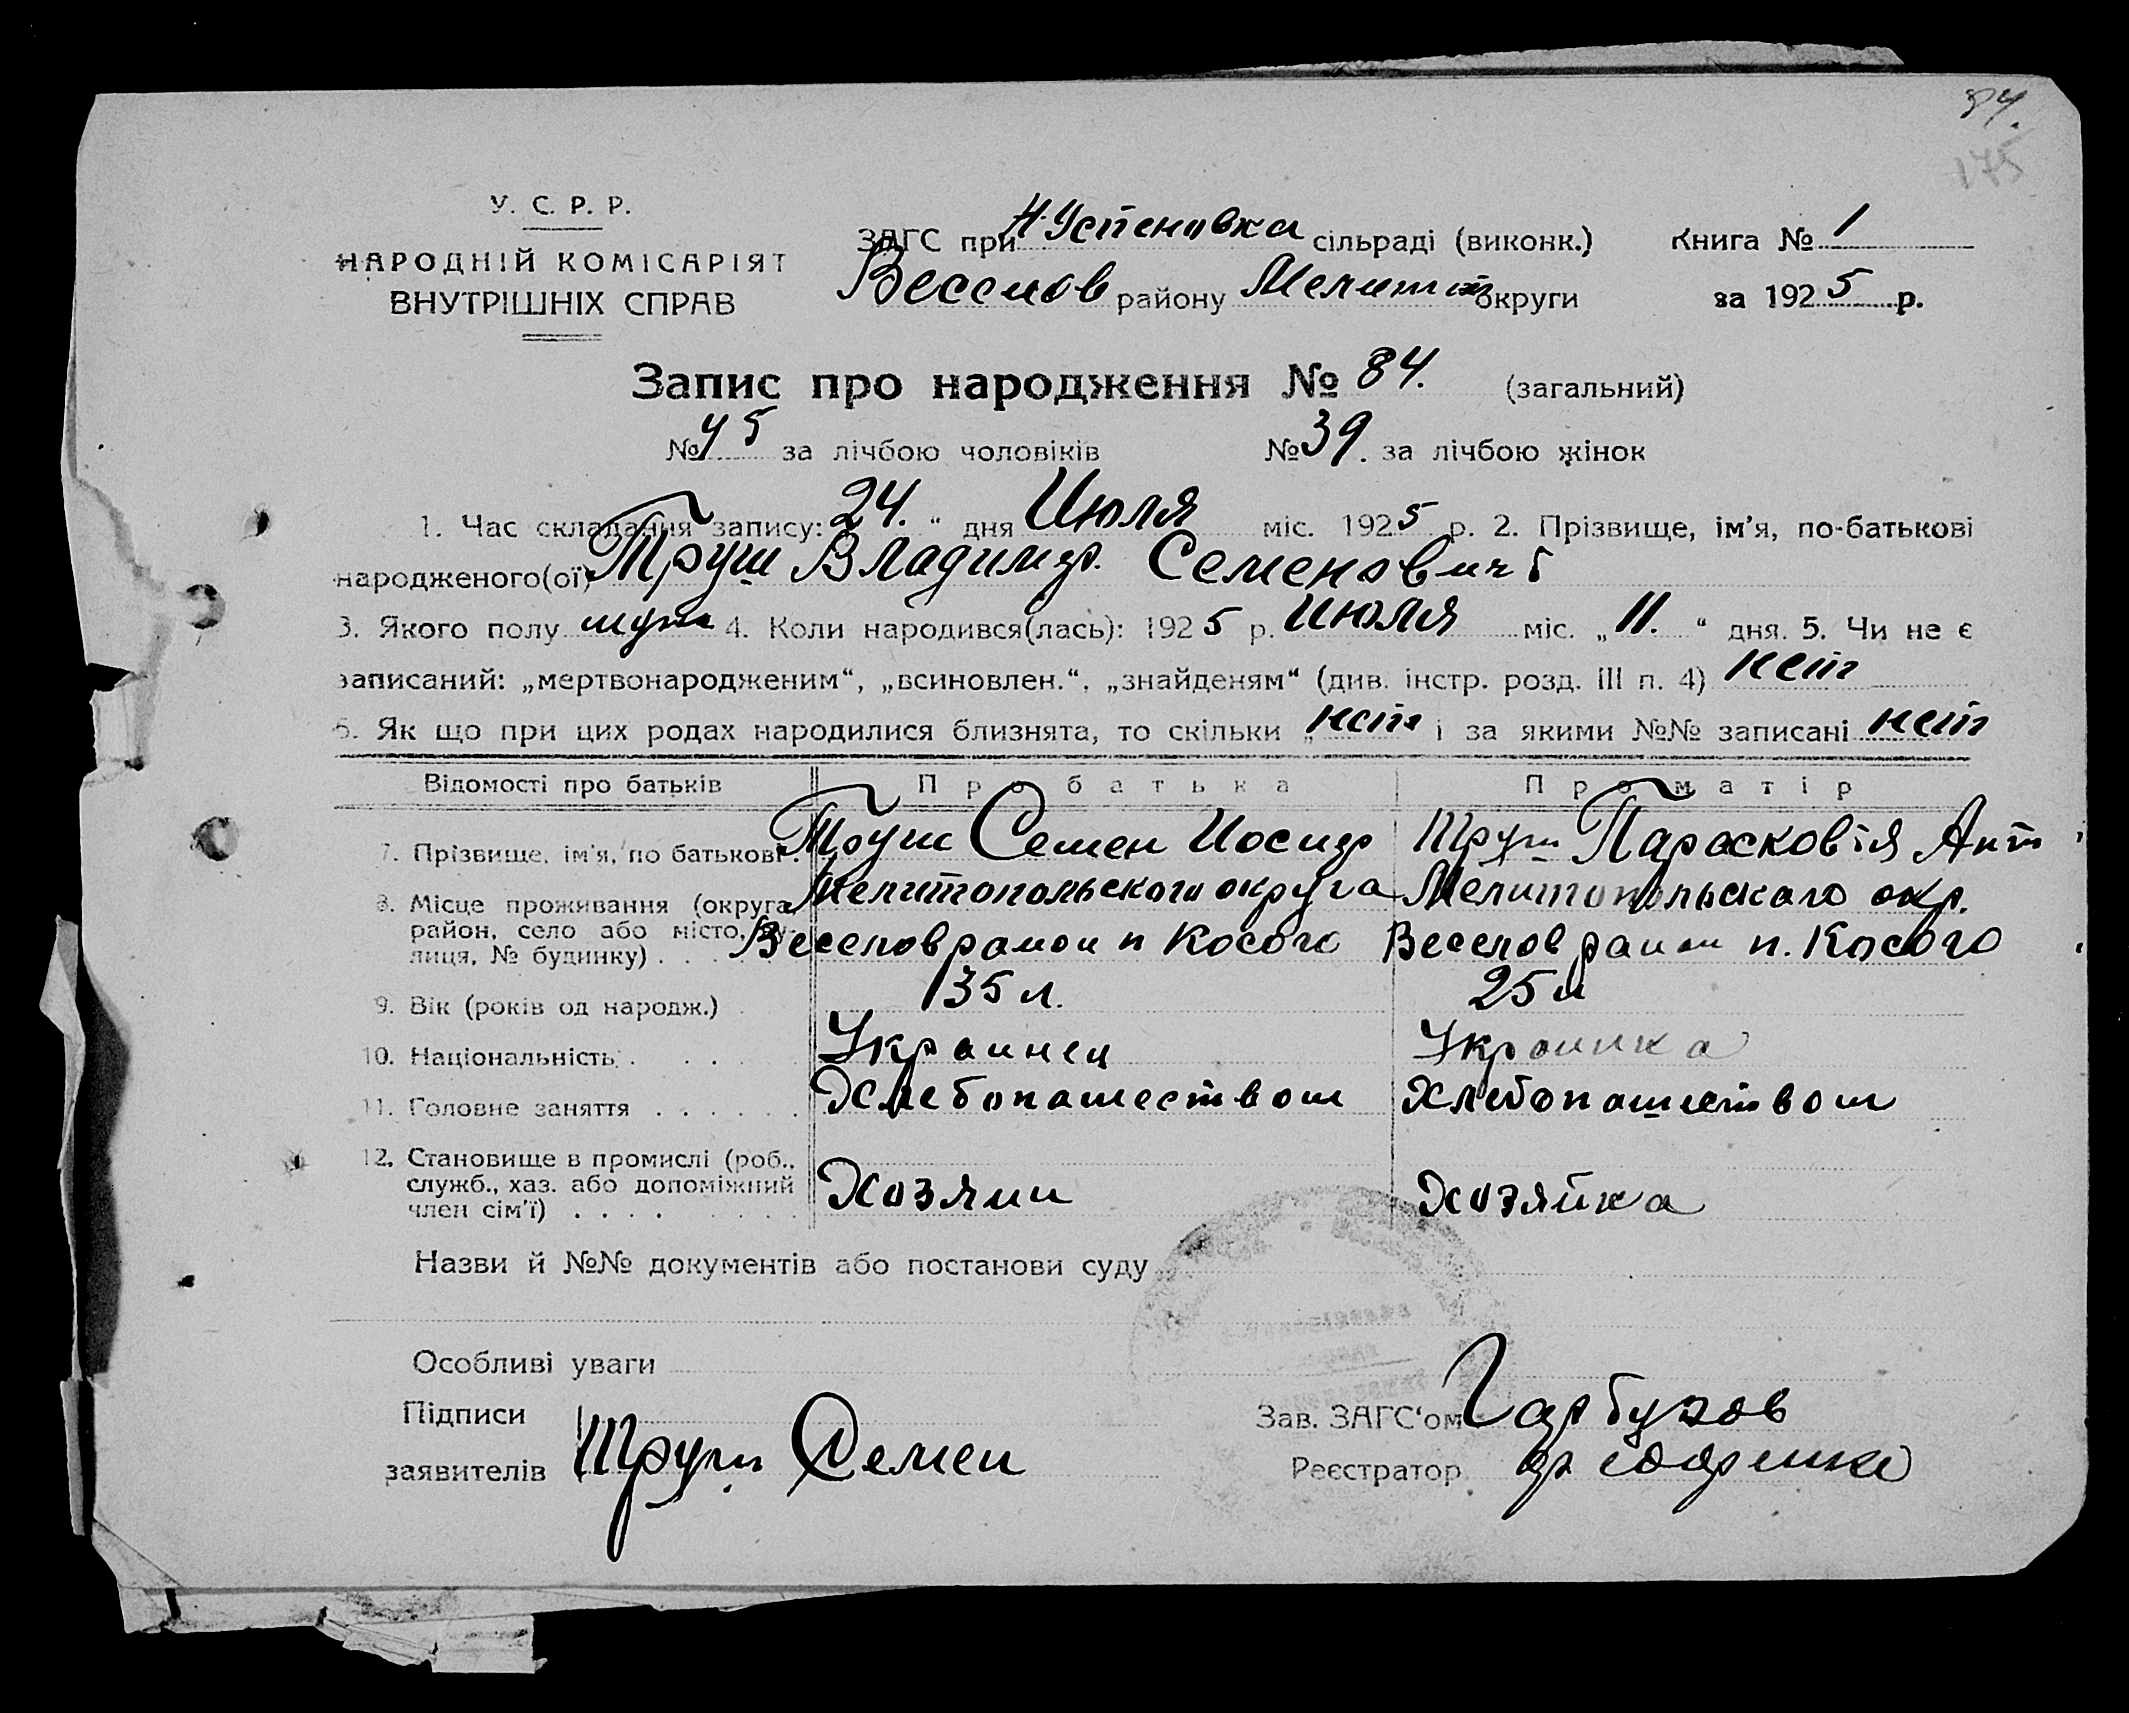 84.
175
У. С. Р. Р.
НАРОДНІЙ КОМІСАРІЯТ
ВНУТРІШНІХ СПРАВ
ЗАГС при Н-Успеновка сільраді (виконк.) Книга № 1
Веселов району Мелитоп округи за 1925 р.
Запис про народження № 84. (загальний)
№ 45 за лічбою чоловіків № 39. за лічбою жінок
1. Час складання запису: 24. “ дня Июля міс. 1925 р. 2. Прізвище, ім’я, по-батькові
народженого(ої) Труш Владимир. Семенович
3. Якого полу муж 4. Коли народився(лась): 1925 р. Июля міс. „11.“ дня. 5. Чи не є
записаний: „мертвонародженим“, „всиновлен.“, „знайденям“ (див. інстр. розд. III п. 4) нет
6. Як що при цих родах народилися близнята, то скільки „нет і за якими №№ записані нет
Відомості про батьків Про батька Про матір
7. Прізвище, ім’я, по батькові. Труш Семен Иосиф Труш Парасковія Ант
8. Місце проживання (округа, район, село або місто, вулиця, № будинку) . . . . Мелитопольского округа Мелитопольского окр.
Веселов район п Косого Веселов район п. Косого
9. Вік (років од народж.) 35 л. 25 л
10. Національність . . . Украинец Украинка
11. Головне заняття . . . . . . Хлебопашеством Хлебопашеством
12. Становище в промислі (роб.,
служб., хаз. або допоміжний
член сім’ї) . . . . Хозяин Хозяйка
Назви й №№ документів або постанови суду
Особливі уваги
Підписи
заявителів Труш Семен
Зав. ЗАГС‘ом Гарбузов
Реєстратор